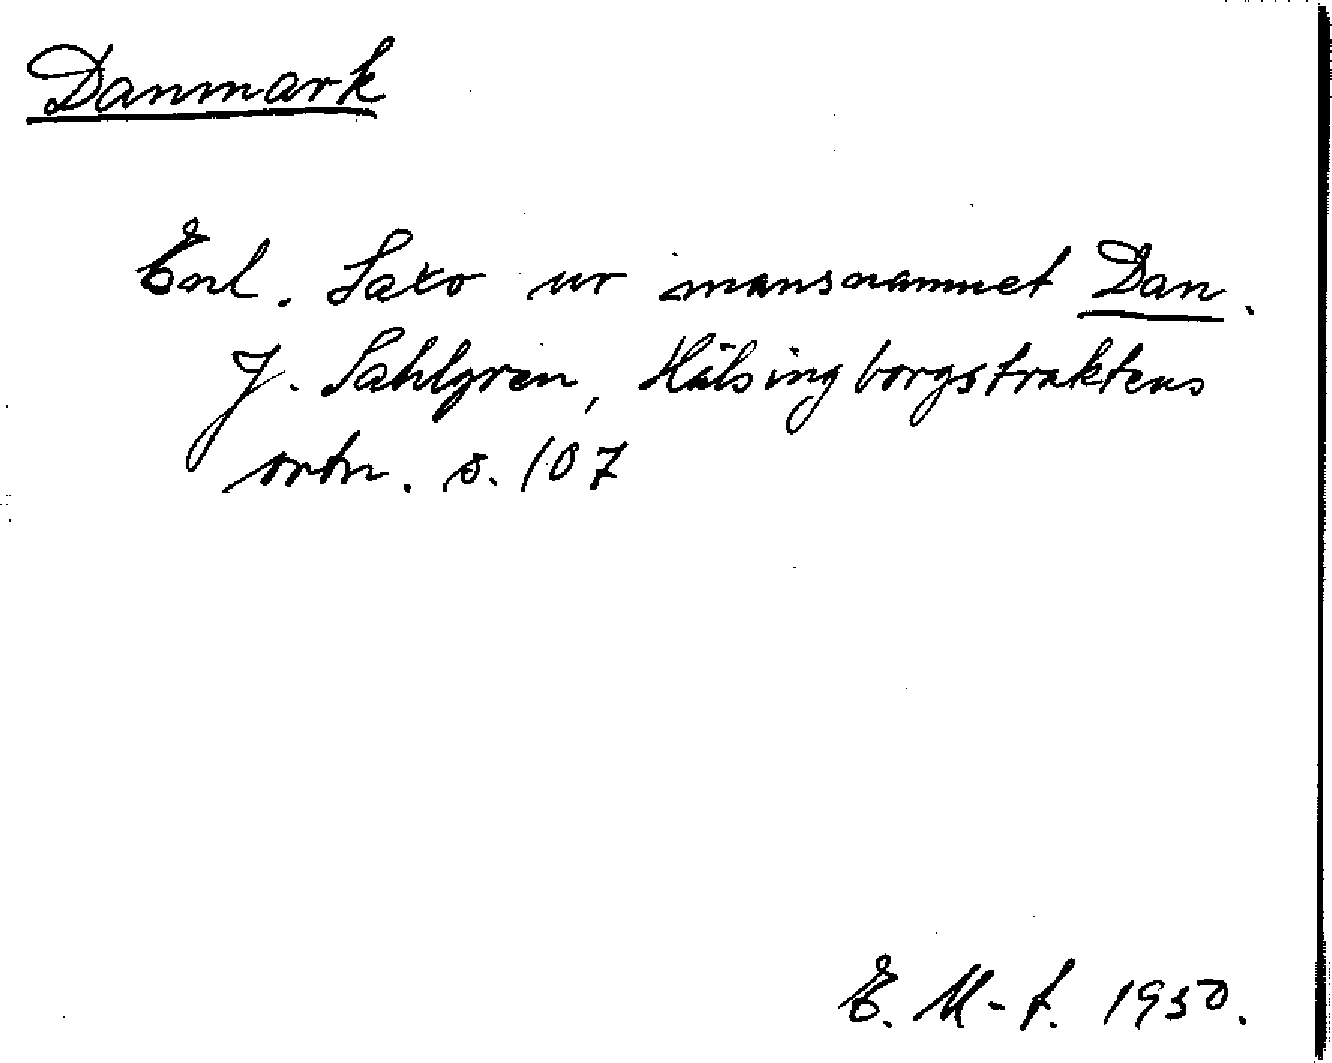 Danmark
Enl. Saxo ur mansnamnet Dan.
J. Sahlgren, Hälsingborgstraktens
ortn. s. 107
E. M-f. 1950.